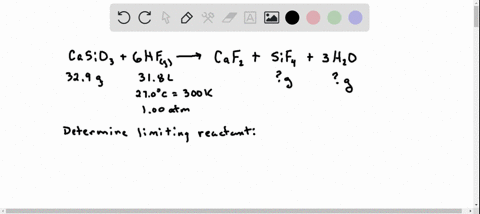 CaSiO₃ + 6HF(g) → CaF₂ + SiF₄ + 3H₂O
32.9 g 31.8 L ? g ? g
27.0°C = 300K
1.00 atm
Determine limiting reactant: